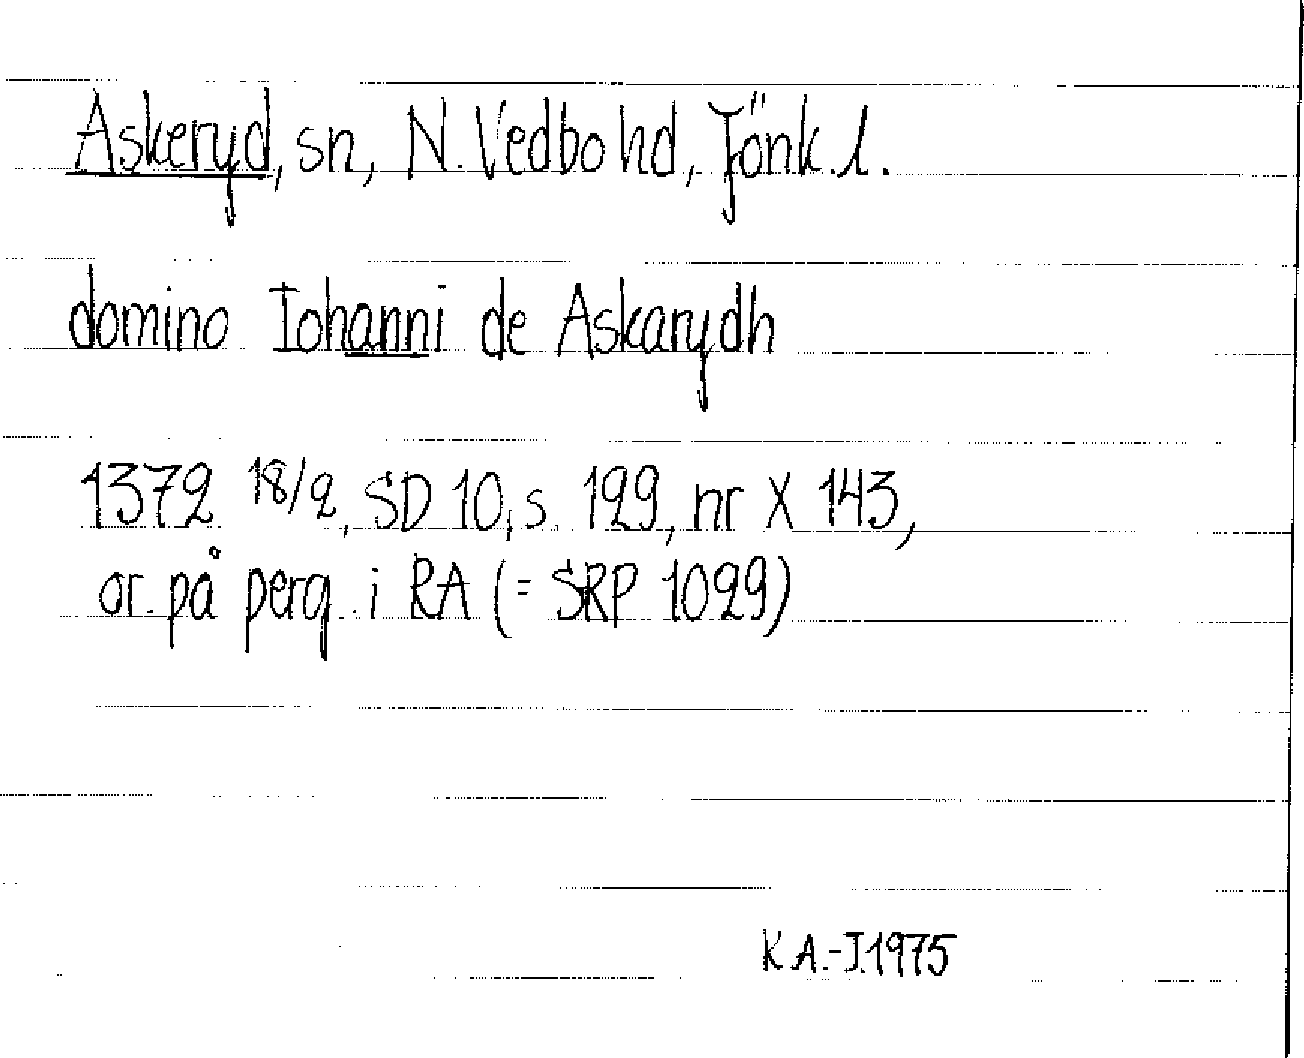 Askeryd, sn, N. Vedbo hd, Jönk. l.
domino Iohanni de Askarydh
1372 18/2, SD 10, s. 129, nr X 143,
or. på perg. i RA (= SRP 1029)
K.A.-J.1975